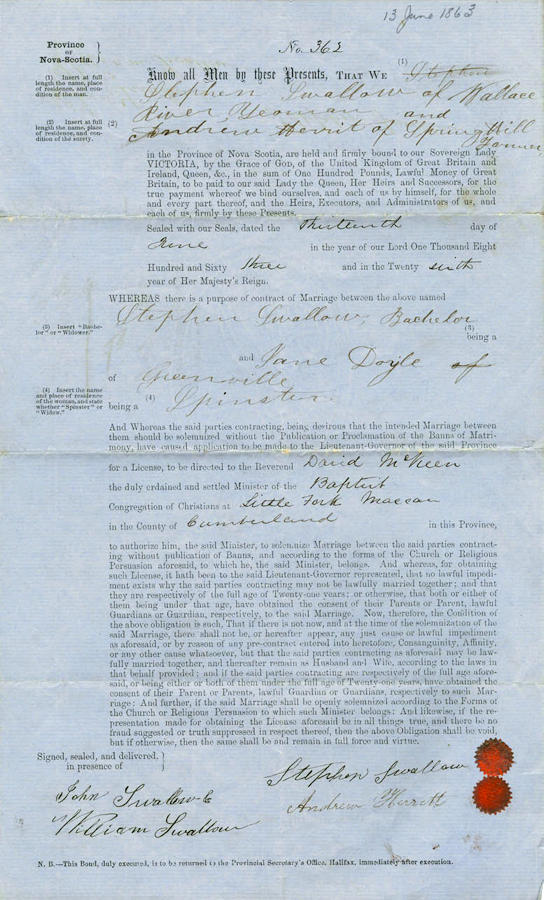 13 June 1863
Province
OF
Nova-Scotia.
No. 362
(1) Insert at full length the name, place of residence, and condition of the man.
Know all Men by these Presents, THAT WE (1) Stephen
Stephen Swallow of Wallace
River Yeoman and
(2) Insert at full length the name, place of residence, and condition of the surety.
(2) Andrew Herrit of Spring Hill
Farmer
in the Province of Nova Scotia, are held and firmly bound to our Sovereign Lady
VICTORIA, by the Grace of GOD, of the United Kingdom of Great Britain and
Ireland, Queen, &c., in the sum of One Hundred Pounds, Lawful Money of Great
Britain, to be paid to our said Lady the Queen, Her Heirs and Successors, for the
true payment whereof we bind ourselves, and each of us by himself, for the whole
and every part thereof, and the Heirs, Executors, and Administrators of us, and
each of us, firmly by these Presents.
Sealed with our Seals, dated the thirteenth day of
June in the year of our Lord One Thousand Eight
Hundred and Sixty three and in the Twenty sixth
year of Her Majesty's Reign.
WHEREAS there is a purpose of contract of Marriage between the above named
Stephen Swallow, Bachelor
(3) Insert "Bachelor" or "Widower."
(3)
being a
and Jane Doyle of
of Greenville
(4) Insert the name and place of residence of the woman, and state whether "Spinster" or "Widow."
being a (4) Spinster
And Whereas the said parties contracting, being desirous that the intended Marriage between
them should be solemnized without the Publication or Proclamation of the Banns of Matri-
mony, have caused application to be made to the Lieutenant-Governor of the said Province
for a License, to be directed to the Reverend David McKeen
the duly ordained and settled Minister of the Baptist
Congregation of Christians at Little Fork Maccan
in the County of Cumberland in this Province,
to authorize him, the said Minister, to solemnize Marriage between the said parties contract-
ing without publication of Banns, and according to the forms of the Church or Religious
Persuasion aforesaid, to which he, the said Minister, belongs. And whereas, for obtaining
such License, it hath been to the said Lieutenant-Governor represented, that no lawful impedi-
ment exists why the said parties contracting may not be lawfully married together; and that
they are respectively of the full age of Twenty-one years; or otherwise, that both or either of
them being under that age, have obtained the consent of their Parents or Parent, lawful
Guardians or Guardian, respectively, to the said Marriage. Now, therefore, the Condition of
the above obligation is such, That if there is not now, and at the time of the solemnization of the
said Marriage, there shall not be, or hereafter appear, any just cause or lawful impediment
as aforesaid, or by reason of any pre-contract entered into heretofore, Consanguinity, Affinity,
or any other cause whatsoever, but that the said parties contracting as aforesaid may be law-
fully married together, and thereafter remain as Husband and Wife, according to the laws in
that behalf provided; and if the said parties contracting are respectively of the full age afore-
said, or being either or both of them under the full age of Twenty-one years, have obtained the
consent of their Parent or Parents, lawful Guardian or Guardians, respectively to such Mar-
riage: And further, if the said Marriage shall be openly solemnized according to the Forms of
the Church or Religious Persuasion to which such Minister belongs: And likewise, if the re-
presentation made for obtaining the License aforesaid be in all things true, and there be no
fraud suggested or truth suppressed in respect thereof, then the above Obligation shall be void,
but if otherwise, then the same shall be and remain in full force and virtue.
Signed, sealed, and delivered,
in presence of
Stephen Swallow
John Swallow
Andrew Herrett
William Swallow
N. B.—This Bond, duly executed, is to be returned to the Provincial Secretary's Office, Halifax, immediately after execution.